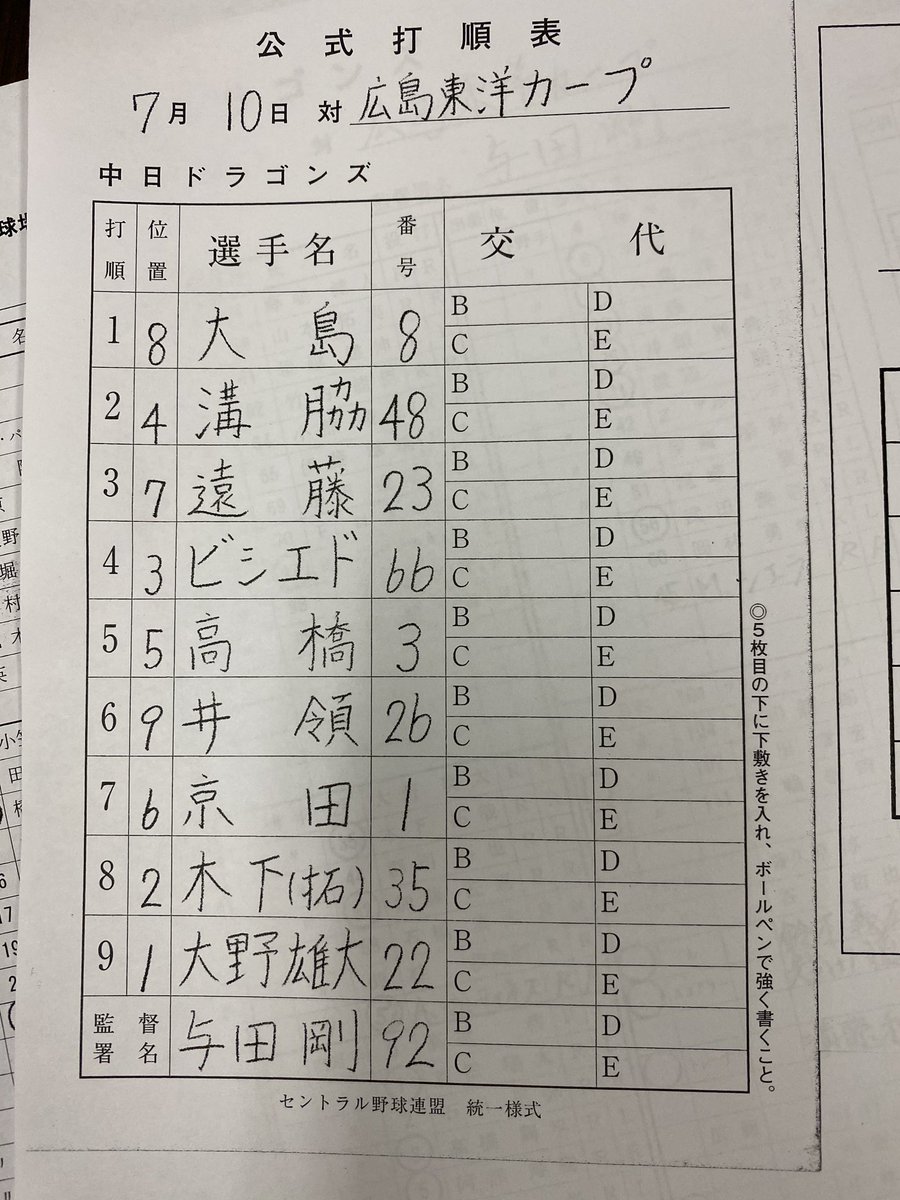 公式打順表
7月 10日 対 広島東洋カープ
中日ドラゴンズ
打順 位置 選手名 番号 交代
1 8 大島 8 B D C E
2 4 溝脇 48 B D C E
3 7 遠藤 23 B D C E
4 3 ビシエド 66 B D C E
5 5 高橋 3 B D C E
6 9 井領 26 B D C E
7 6 京田 1 B D C E
8 2 木下(拓) 35 B D C E
9 1 大野雄大 22 B D C E
監督署名 与田剛 92 B D C E
セントラル野球連盟 統一様式
◎5枚目の下に下敷きを入れ、ボールペンで強く書くこと。